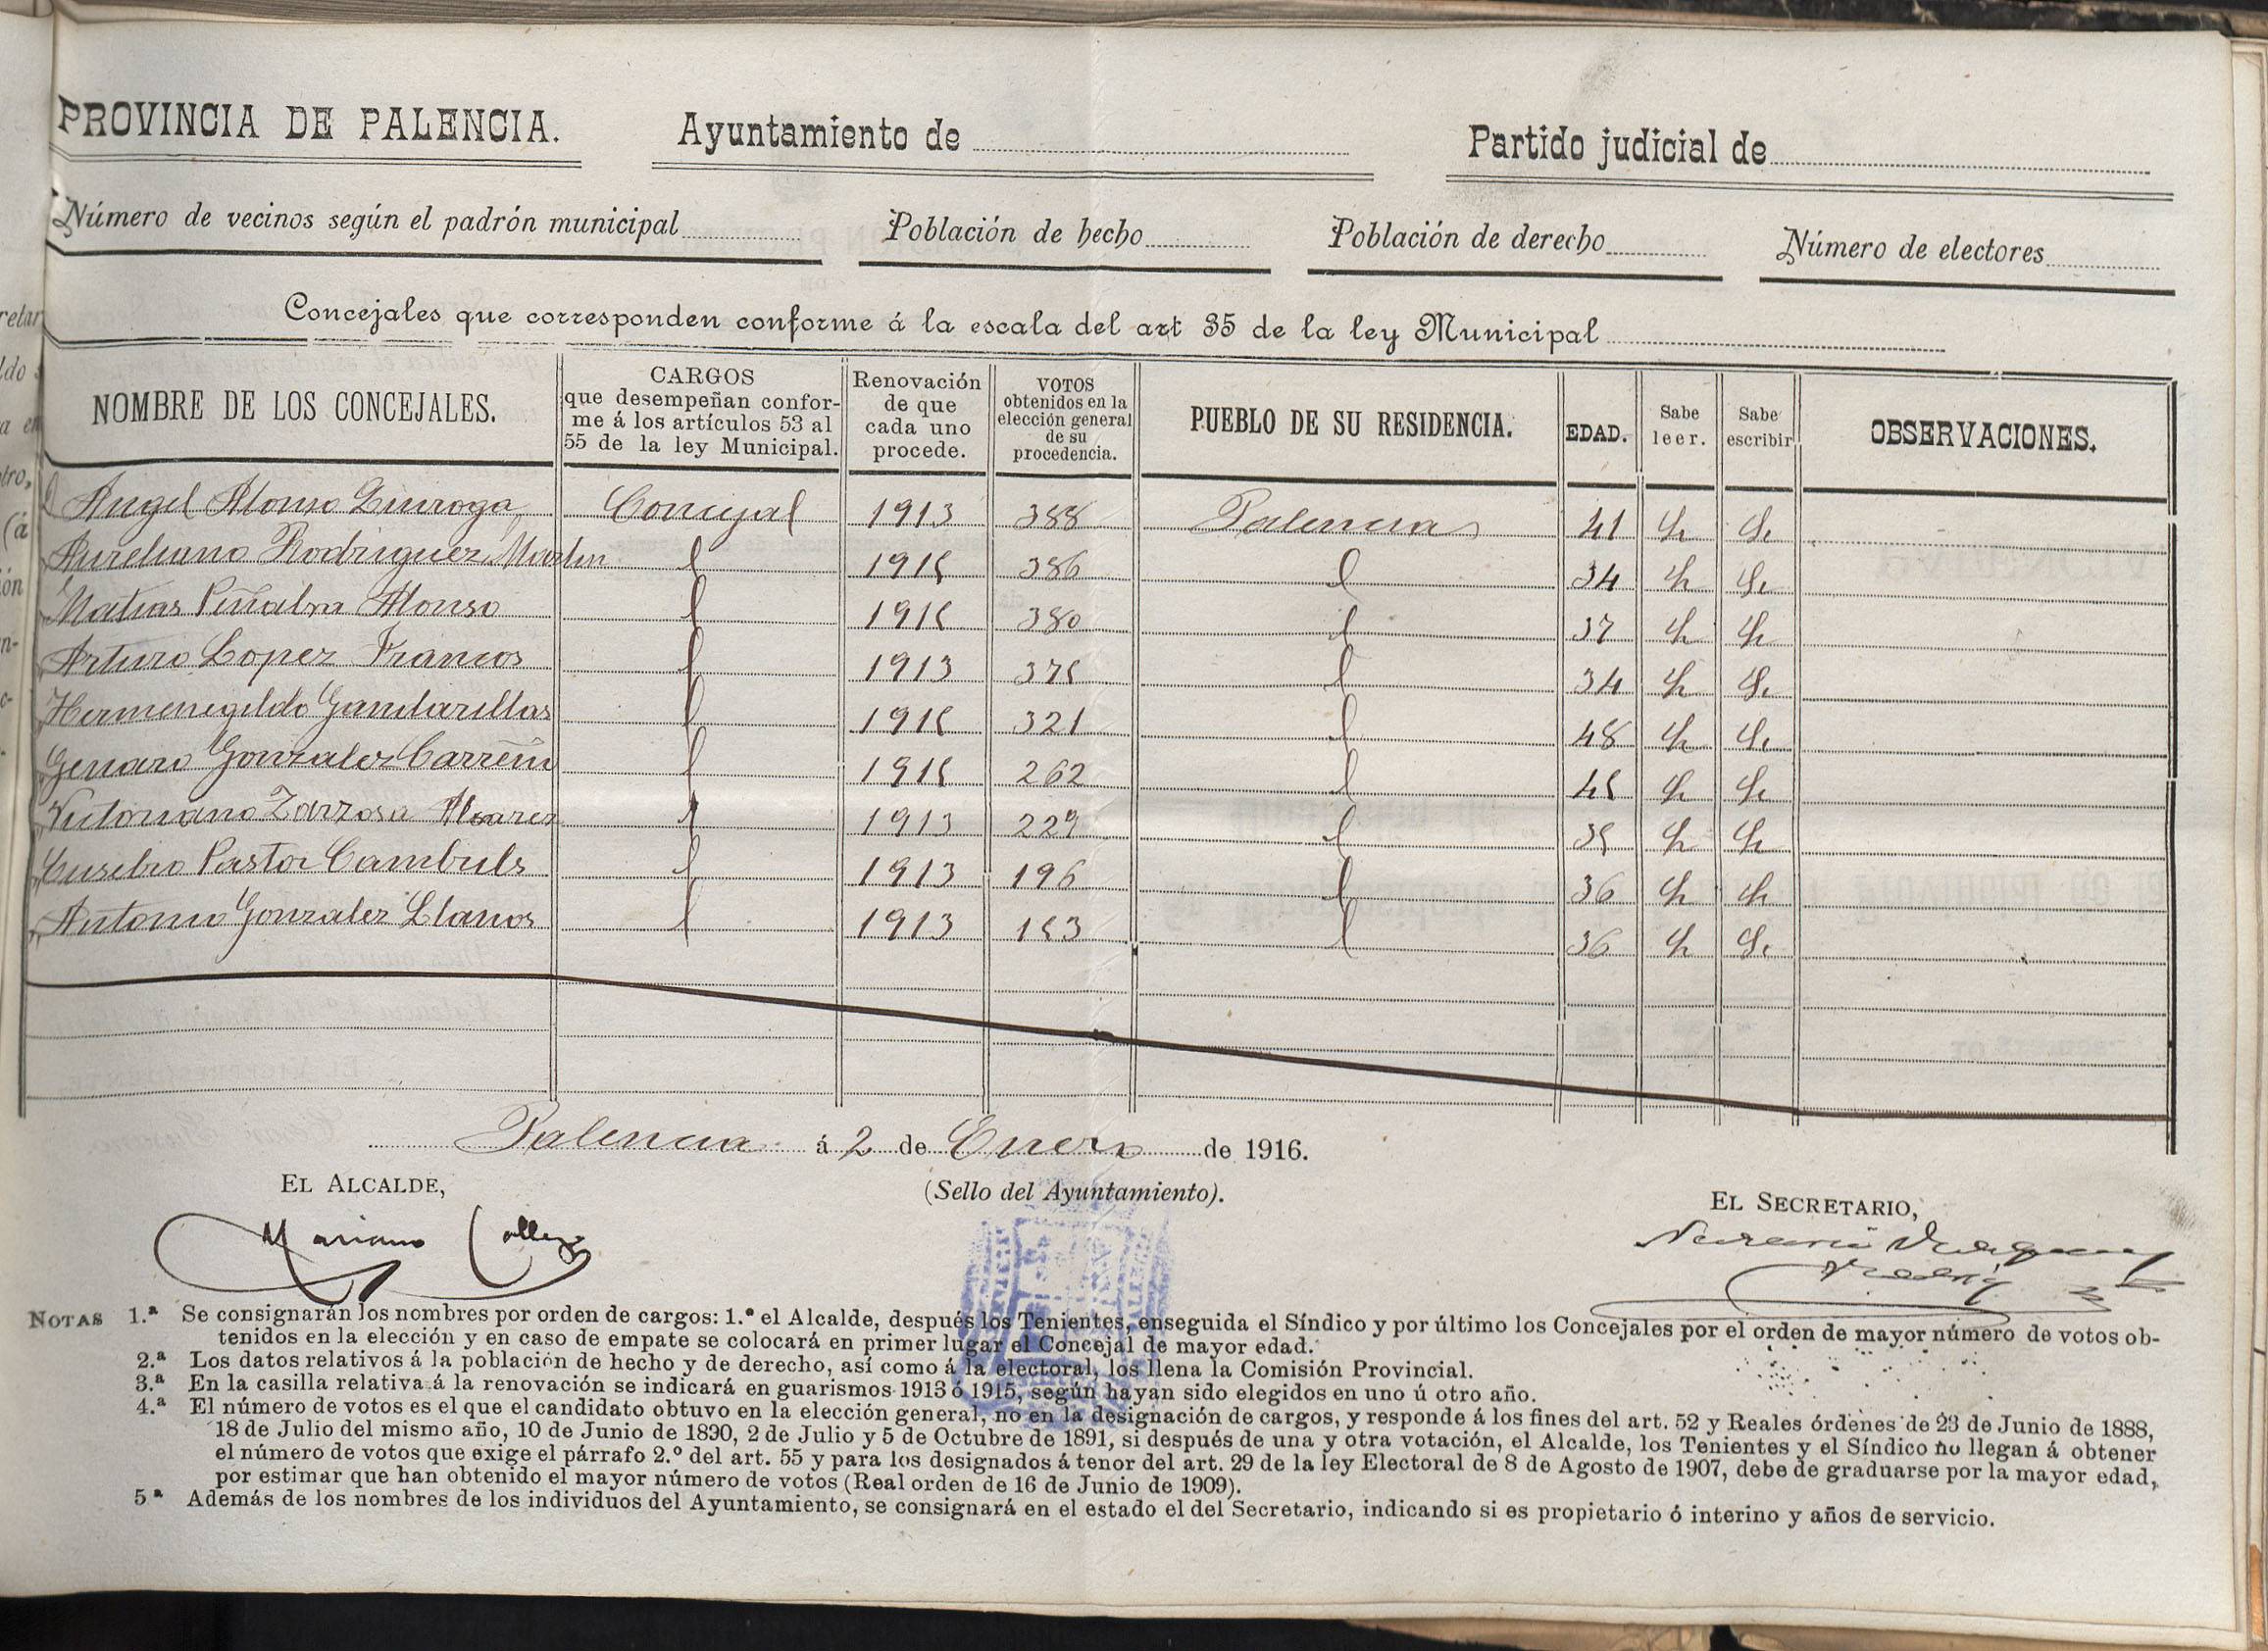 PROVINCIA DE PALENCIA. Ayuntamiento de Partido judicial de
Número de vecinos según el padrón municipal Población de hecho Población de derecho Número de electores
Concejales que corresponden conforme á la escala del art 35 de la ley Municipal
NOMBRE DE LOS CONCEJALES.
CARGOS
que desempeñan confor-
me á los artículos 53 al
55 de la ley Municipal.
Renovación
de que
cada uno
procede.
VOTOS
obtenidos en la
elección general
de su
procedencia.
PUEBLO DE SU RESIDENCIA.
EDAD.
Sabe
leer.
Sabe
escribir
OBSERVACIONES.
Angel Alonso Quiroga Concejal 1913 388 Palencia 41 Si Si
Aureliano Rodriguez Martin 1915 386 34 Si Si
Matias Peñalba Alonso 1915 380 37 Si Si
Arturo Lopez Francos 1913 375 34 Si Si
Hermenegildo Gandarillas 1915 321 48 Si Si
Genaro Gonzalez Carreño 1915 262 45 Si Si
Victoriano Zarzosa Alvarez 1913 229 35 Si Si
Eusebio Pastor 1913 196 36 Si Si
Antonio Gonzalez Llanos 1913 153 36 Si Si
Palencia á 2 de Enero de 1916.
EL ALCALDE,
(Sello del Ayuntamiento).
EL SECRETARIO,
Mariano Gallego
NOTAS 1.ª Se consignarán los nombres por orden de cargos: 1.º el Alcalde, después los Tenientes, enseguida el Síndico y por último los Concejales por el orden de mayor número de votos ob-
tenidos en la elección y en caso de empate se colocará en primer lugar el Concejal de mayor edad.
2.ª Los datos relativos á la población de hecho y de derecho, así como á la electoral, los llena la Comisión Provincial.
3.ª En la casilla relativa á la renovación se indicará en guarismos 1913 ó 1915, según hayan sido elegidos en uno ú otro año.
4.ª El número de votos es el que el candidato obtuvo en la elección general, no en la designación de cargos, y responde á los fines del art. 52 y Reales órdenes de 23 de Junio de 1888,
18 de Julio del mismo año, 10 de Junio de 1890, 2 de Julio y 5 de Octubre de 1891, si después de una y otra votación, el Alcalde, los Tenientes y el Síndico no llegan á obtener
el número de votos que exige el párrafo 2.º del art. 55 y para los designados á tenor del art. 29 de la ley Electoral de 8 de Agosto de 1907, debe de graduarse por la mayor edad,
por estimar que han obtenido el mayor número de votos (Real orden de 16 de Junio de 1909).
5ª Además de los nombres de los individuos del Ayuntamiento, se consignará en el estado el del Secretario, indicando si es propietario ó interino y años de servicio.